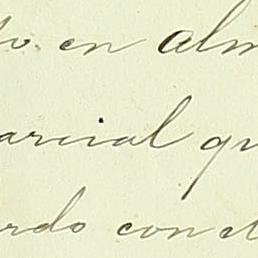 to. en alm
arcial qu
rdo con el